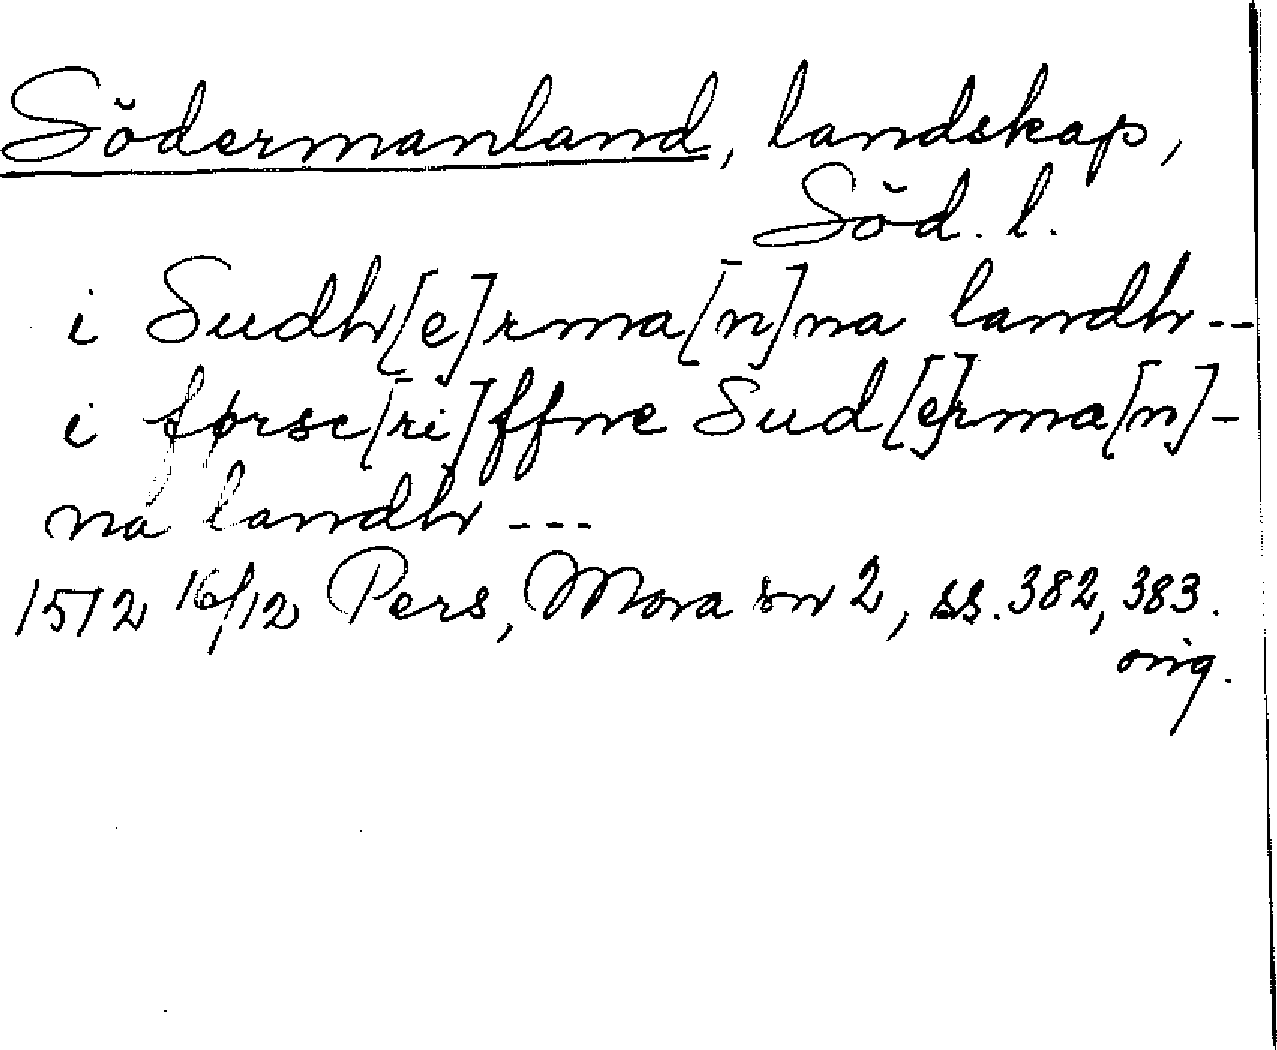 Södermanland, landskap,
Söd. l.
i Sudh[e]rma[n]na landh --
i førsc[ri]ffne Sud[e]rma[n]-
na landh ---
1512 16/12 Pers, Mora sn 2, ss. 382, 383.
orig.